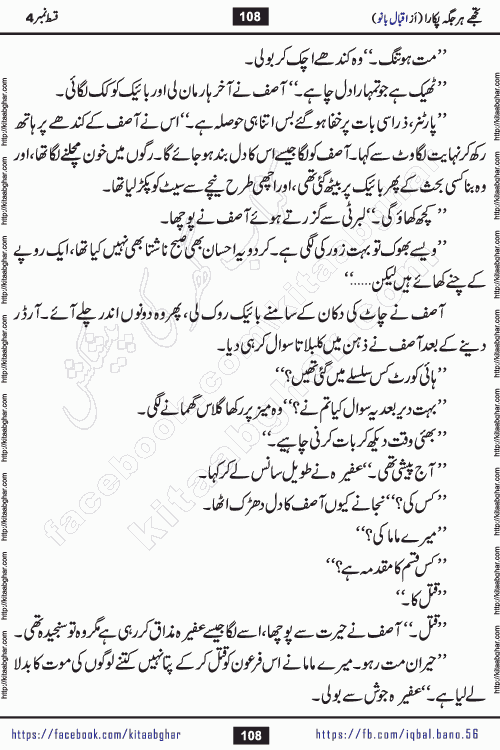 تجھے ہر جگہ پکارا (از اقبال بانو)
108
قسط نمبر 4
’’مت ہو تنگ۔‘‘ وہ کندھے اچک کر بولی۔
’’ٹھیک ہے جو تمہارا دل چاہے۔‘‘ آصف نے آخر ہار مان لی اور بائیک کو کک لگائی۔
’’پارٹنر، ذرا سی بات پر خفا ہو گئے بس اتنا ہی حوصلہ ہے۔‘‘ اس نے آصف کے کندھے پر ہاتھ
رکھ کر نہایت لگاوٹ سے کہا۔ آصف کو لگا جیسے اس کا دل بند ہو جائے گا۔ رگوں میں خون مچلنے لگا تھا، اور
وہ بنا کسی بحث کے پھر بائیک پر بیٹھ گئی تھی، اور اچھی طرح نیچے سے سیٹ کو پکڑ لیا تھا۔
’’کچھ کھاؤ گی۔‘‘ لبرٹی سے گزرتے ہوئے آصف نے پوچھا۔
’’ویسے بھوک تو بہت زور کی لگی ہے۔ کر دو یہ احسان بھی صبح ناشتا بھی نہیں کیا تھا، ایک روپے
کے چنے کھائے ہیں لیکن......‘‘
آصف نے چاٹ کی دکان کے سامنے بائیک روک لی، پھر وہ دونوں اندر چلے آئے۔ آرڈر
دینے کے بعد آصف نے ذہن میں کلبلاتا سوال کر ہی دیا۔
’’ہائی کورٹ کس سلسلے میں گئی تھیں؟‘‘
’’بہت دیر بعد یہ سوال کیا تم نے؟‘‘ وہ میز پر رکھا گلاس گھمانے لگی۔
’’بھئی وقت دیکھ کر بات کرنی چاہیے۔‘‘
’’آج پیشی تھی۔‘‘ عفیرہ نے طویل سانس لے کر کہا۔
’’کس کی؟‘‘ نجانے کیوں آصف کا دل دھڑک اٹھا۔
’’میرے ماما کی؟‘‘
’’کس قسم کا مقدمہ ہے؟‘‘
’’قتل کا۔‘‘
’’قتل۔‘‘ آصف نے حیرت سے پوچھا، اسے لگا جیسے عفیرہ مذاق کر رہی ہے مگر وہ تو سنجیدہ تھی۔
’’حیران مت رہو۔ میرے ماما نے اس فرعون کو قتل کر کے پتا نہیں کتنے لوگوں کی موت کا بدلا
لے لیا ہے۔‘‘ عفیرہ جوش سے بولی۔
https://facebook.com/kitaabghar
108
https://fb.com/iqbal.bano.56
http://kitaabghar.com